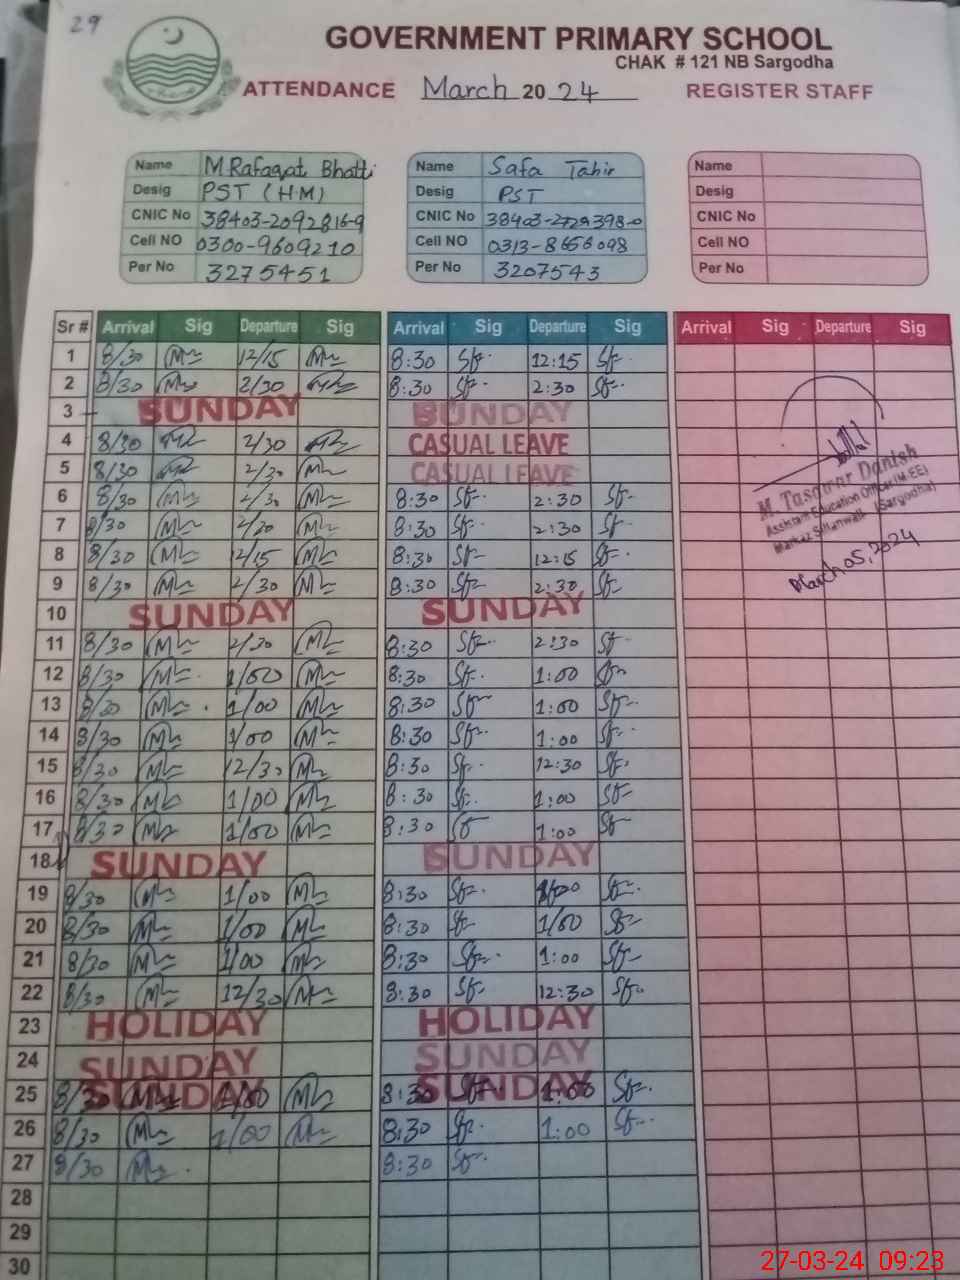 29
GOVERNMENT PRIMARY SCHOOL
CHAK # 121 NB Sargodha
ATTENDANCE March 20 24 REGISTER STAFF
Name M.Rafaqat Bhatti Name Safa Tahir Name
Desig PST (HM) Desig PST Desig
CNIC No 38403-2092816-9 CNIC No CNIC No
Cell NO 0300-9609210 Cell NO 0313-8656098 Cell NO
Per No 3275451 Per No 3207543 Per No
Sr # Arrival Sig Departure Sig Arrival Sig Departure Sig Arrival Sig Departure Sig
1 8/30 12/15 8:30 12:15
2 8/30 2/30 8:30 2:30
3 SUNDAY SUNDAY
4 8/30 2/30 CASUAL LEAVE
5 8/30 2/30 CASUAL LEAVE
6 8/30 2/30 8:30 2:30
7 8/30 2/30 8:30 2:30
8 8/30 12/15 8:30 12:15
9 8/30 2/30 8:30 2:30
M. Tasawar Danish
Assistant Education Officer (M-EE)
Markaz (Sargodha)
March 05, 2024
10 SUNDAY SUNDAY
11 8/30 2/30 8:30 2:30
12 8/30 1/00 8:30 1:00
13 8/30 1/00 8:30 1:00
14 8/30 1/00 8:30 1:00
15 8/30 12/30 8:30 12:30
16 8/30 1/00 8:30 1:00
17 8/30 1/00 8:30 1:00
18 SUNDAY SUNDAY
19 8/30 1/00 8:30
20 8/30 1/00 8:30 1/00
21 8/30 1/00 8:30 1:00
22 8/30 12/30 8:30 12:30
23 HOLIDAY HOLIDAY
24 SUNDAY SUNDAY
25 8/30 SUNDAY 1/00 8:30 SUNDAY 1:00
26 8/30 1/00 8:30 1:00
27 8/30 8:30
28
29
30
27-03-24 09:23